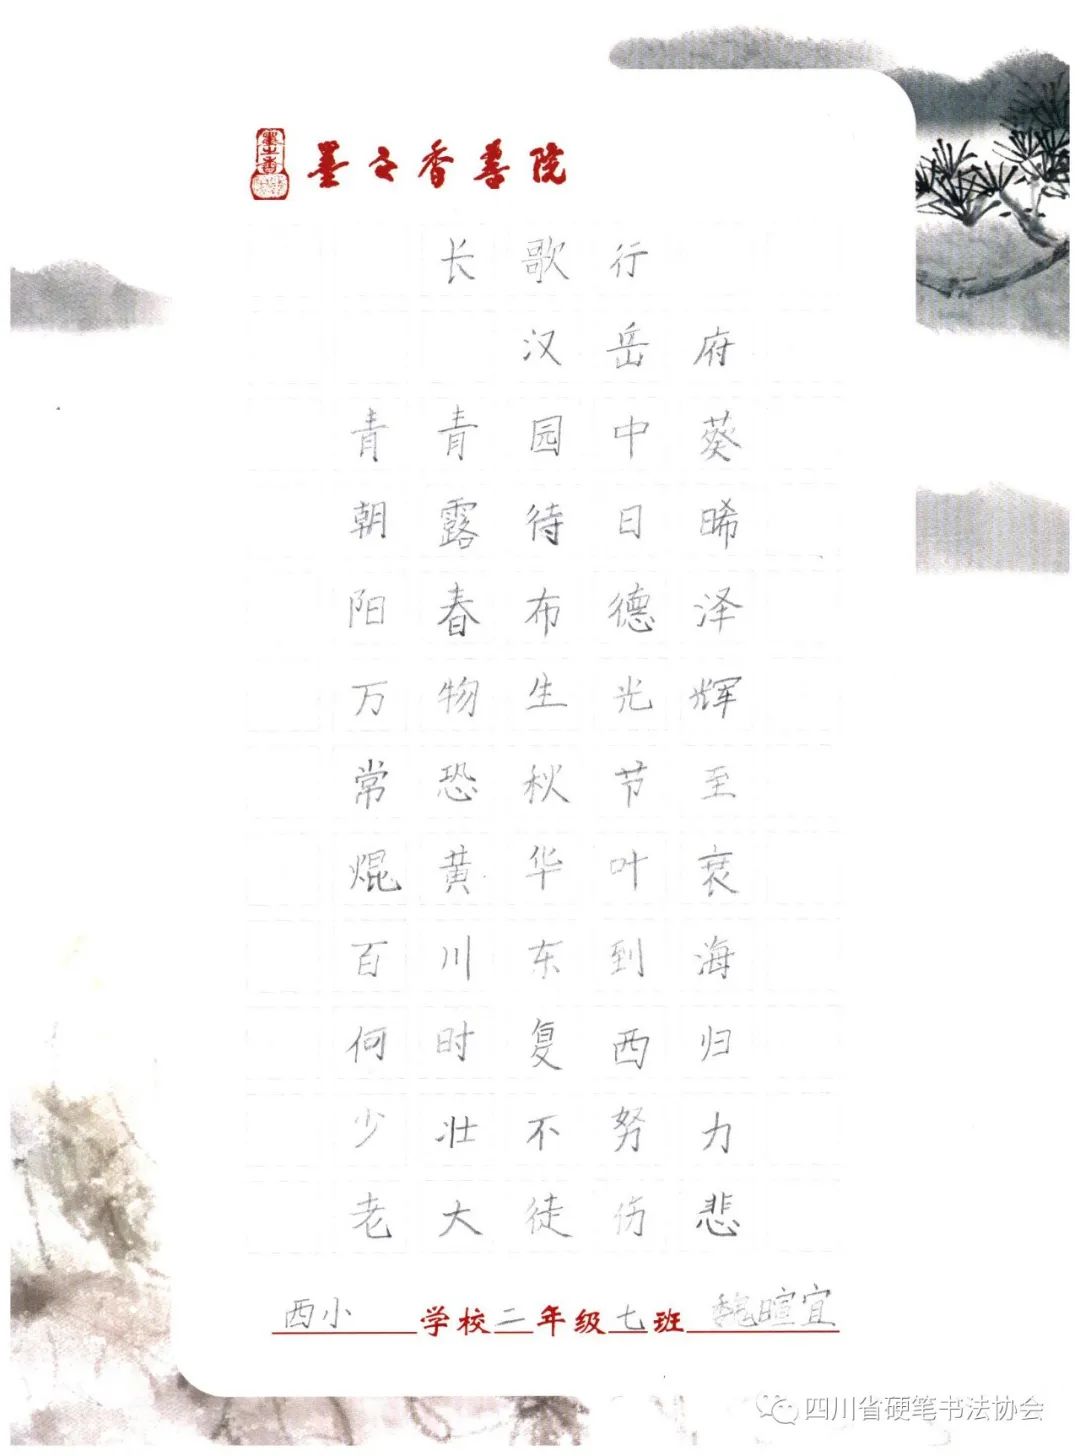 墨之香
墨之香书院
长歌行
汉岳府
青青园中葵
朝露待日晞
阳春布德泽
万物生光辉
常恐秋节至
焜黄华叶衰
百川东到海
何时复西归
少壮不努力
老大徒伤悲
西小学校二年级七班魏暄宜
四川省硬笔书法协会